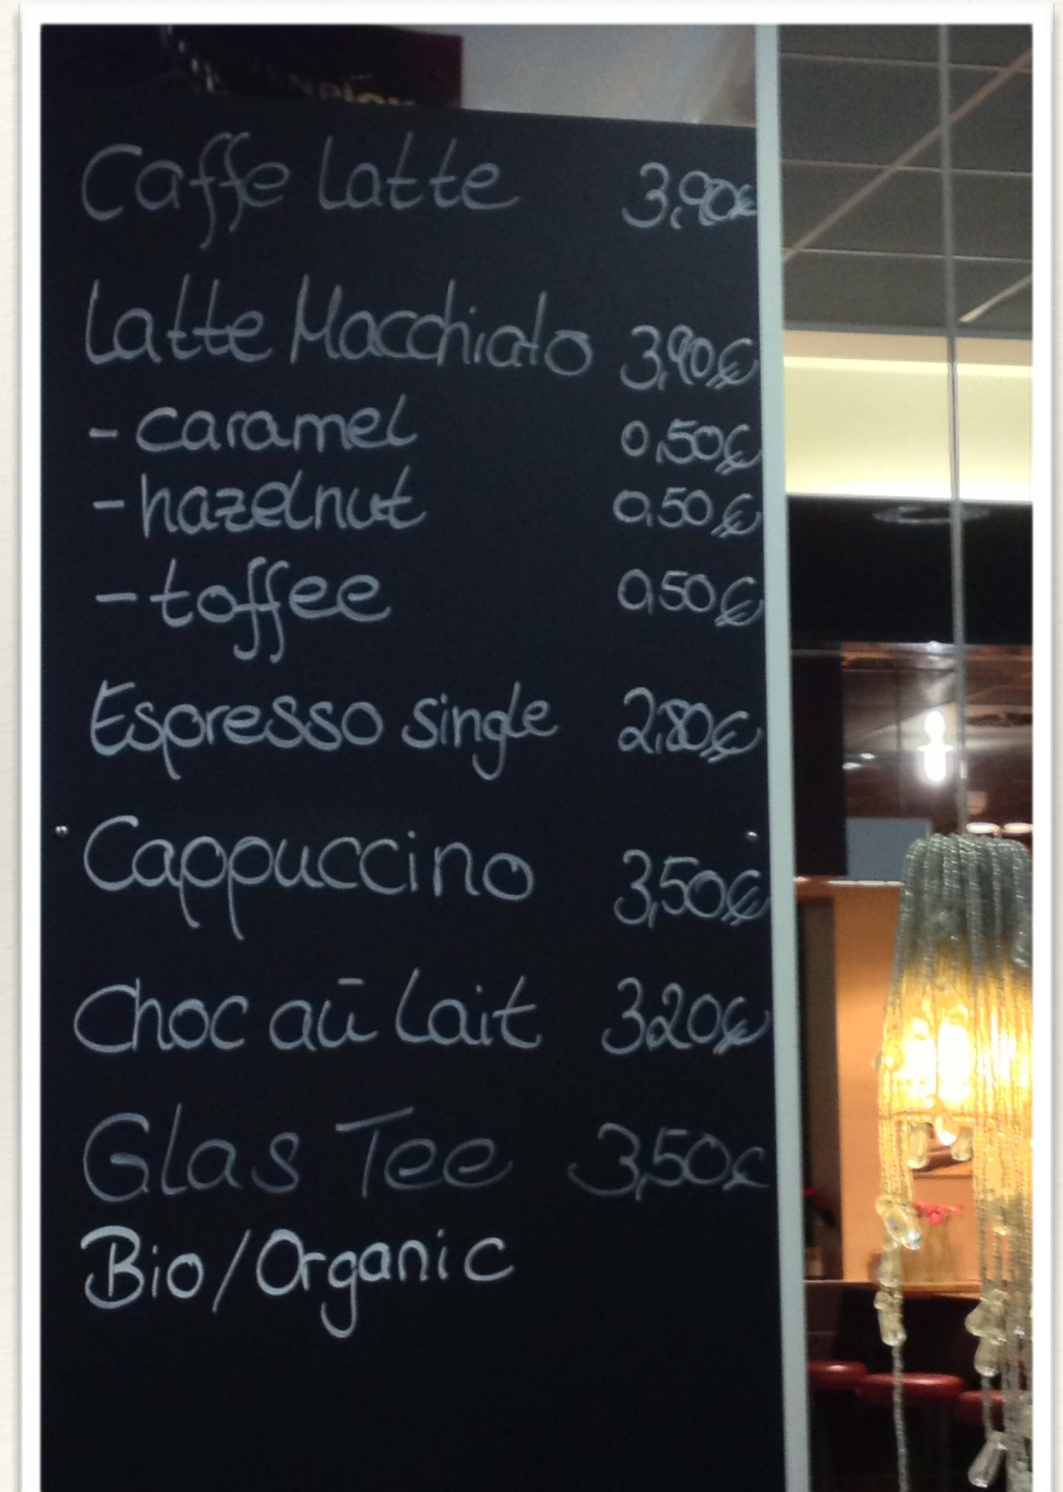 Caffe Latte 3,90€
Latte Macchiato 3,90€
- caramel 0,50€
- hazelnut 0,50€
- toffee 0,50€
Espresso single 2,80€
Cappuccino 3,50€
Choc aū Lait 3,20€
Glas Tee 3,50€
Bio/Organic